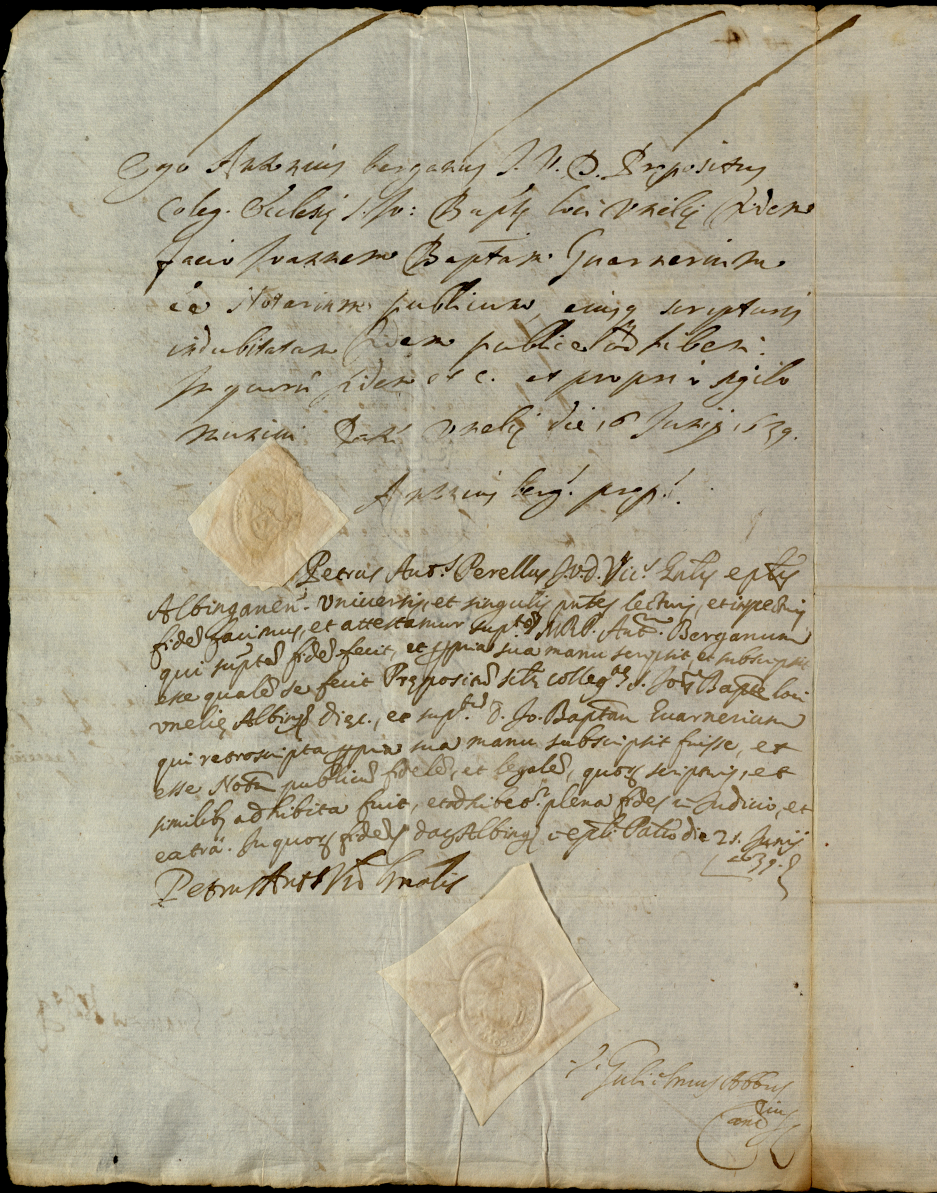 Ego Antonius berganus J. V. D. Prepositus
Coleg. Eclesię S. Jo: Baptę loci Vnelię fidem
facio Joannem Baptam Guarnerium
ee Notarium publicum, eiusq scripturis
indubitatam fidem publice adhiberi.
In quorū fidem etc. et proprio sigilo
muniui Dat Vnelię die 16 Junij 1639.
Antonius berg. prep.
Petrus Ant.s Perellus J.V.D. Vic.s Gnlis eptis
Albinganen. Vniversis, et singulis pntes lecturis, et inspecturis
fidē facimus, et attestamur supte M.R.D. Ant. Berganum
qui suptā fidē fecit, et ppria sua manu scripsit, et subscripsit
esse qualē se fecit Prępositū collegte S. Jois Bapte loci
Vnelię Albingę dięc., et supt. D. Jo. Baptam Guarnerium
qui retroscripta ppria sua manu subscripsit fuisse, et
esse Notm publicū fidelē, et legalē, quoq scripturis, et
similib adhibita fuit, et adhibetr plena fides in Judicio, et
extra. In quorq fidē dat Albingę in epli Palio die 21. Junij
1639.
Petrus Ants Vics Gnalis
Gulielmus Abbus
Canc